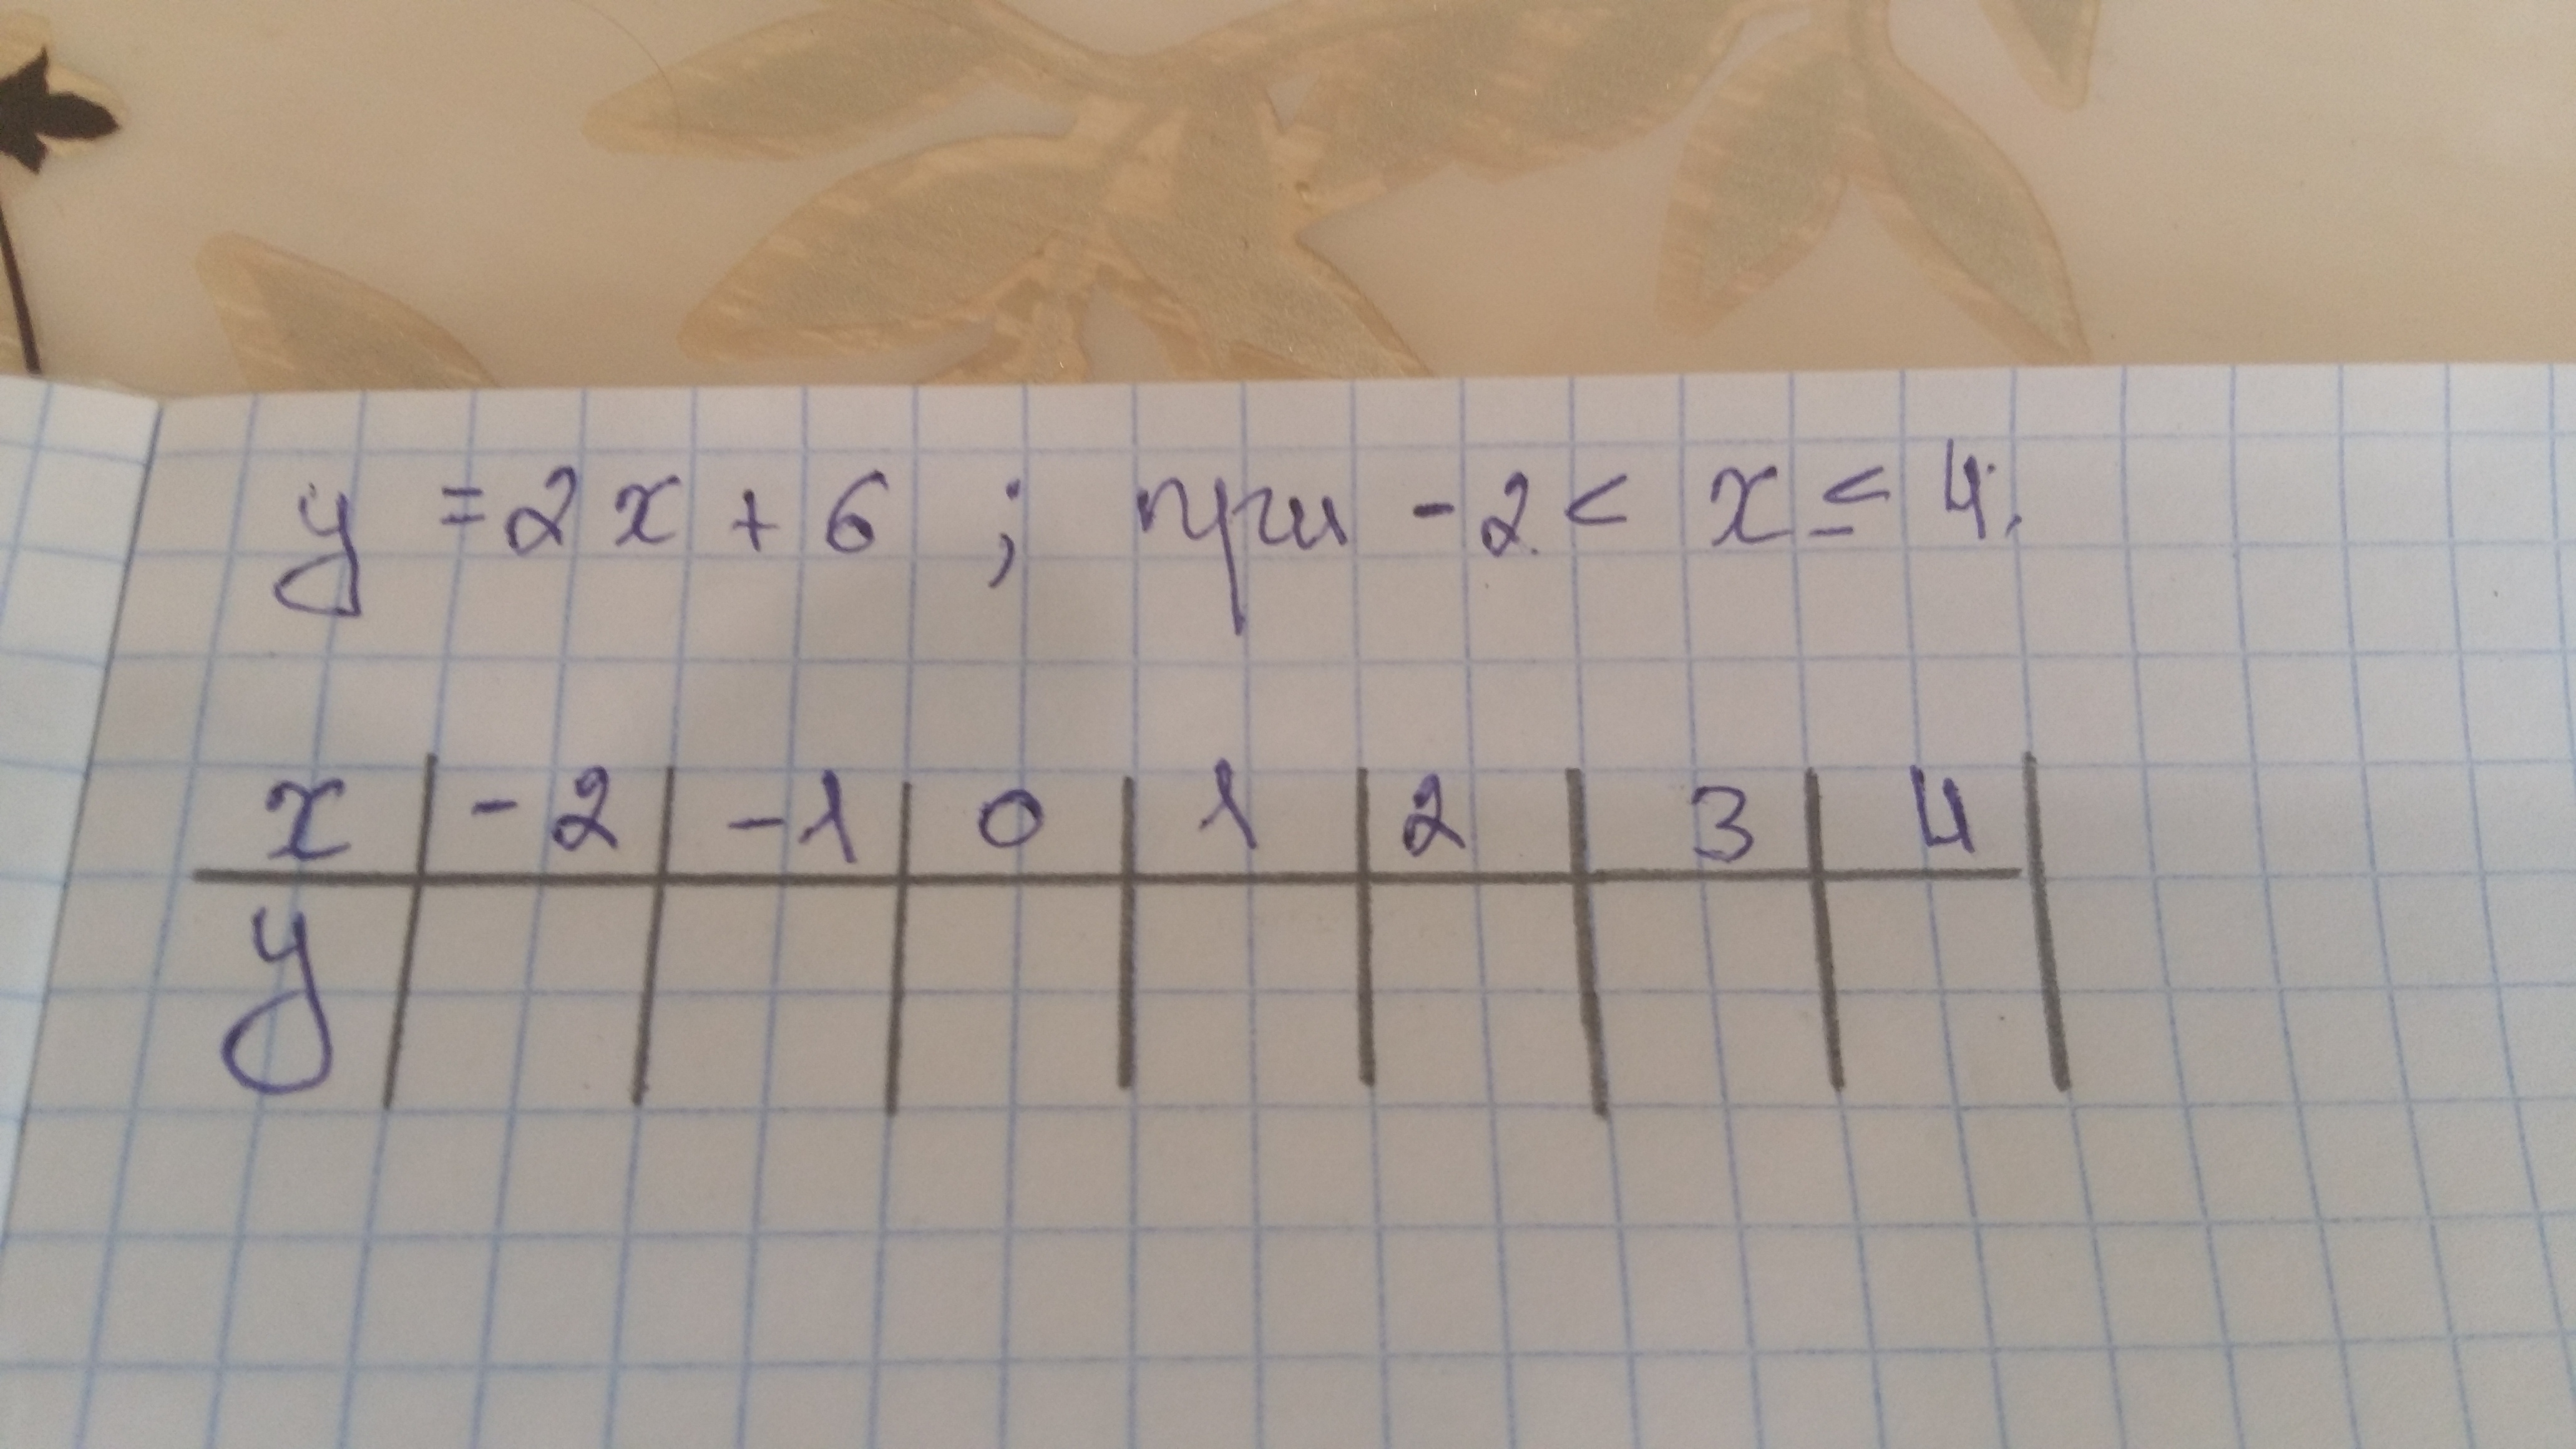 y = 2x + 6 ; при -2 < x ≤ 4.
x -2 -1 0 1 2 3 4
y